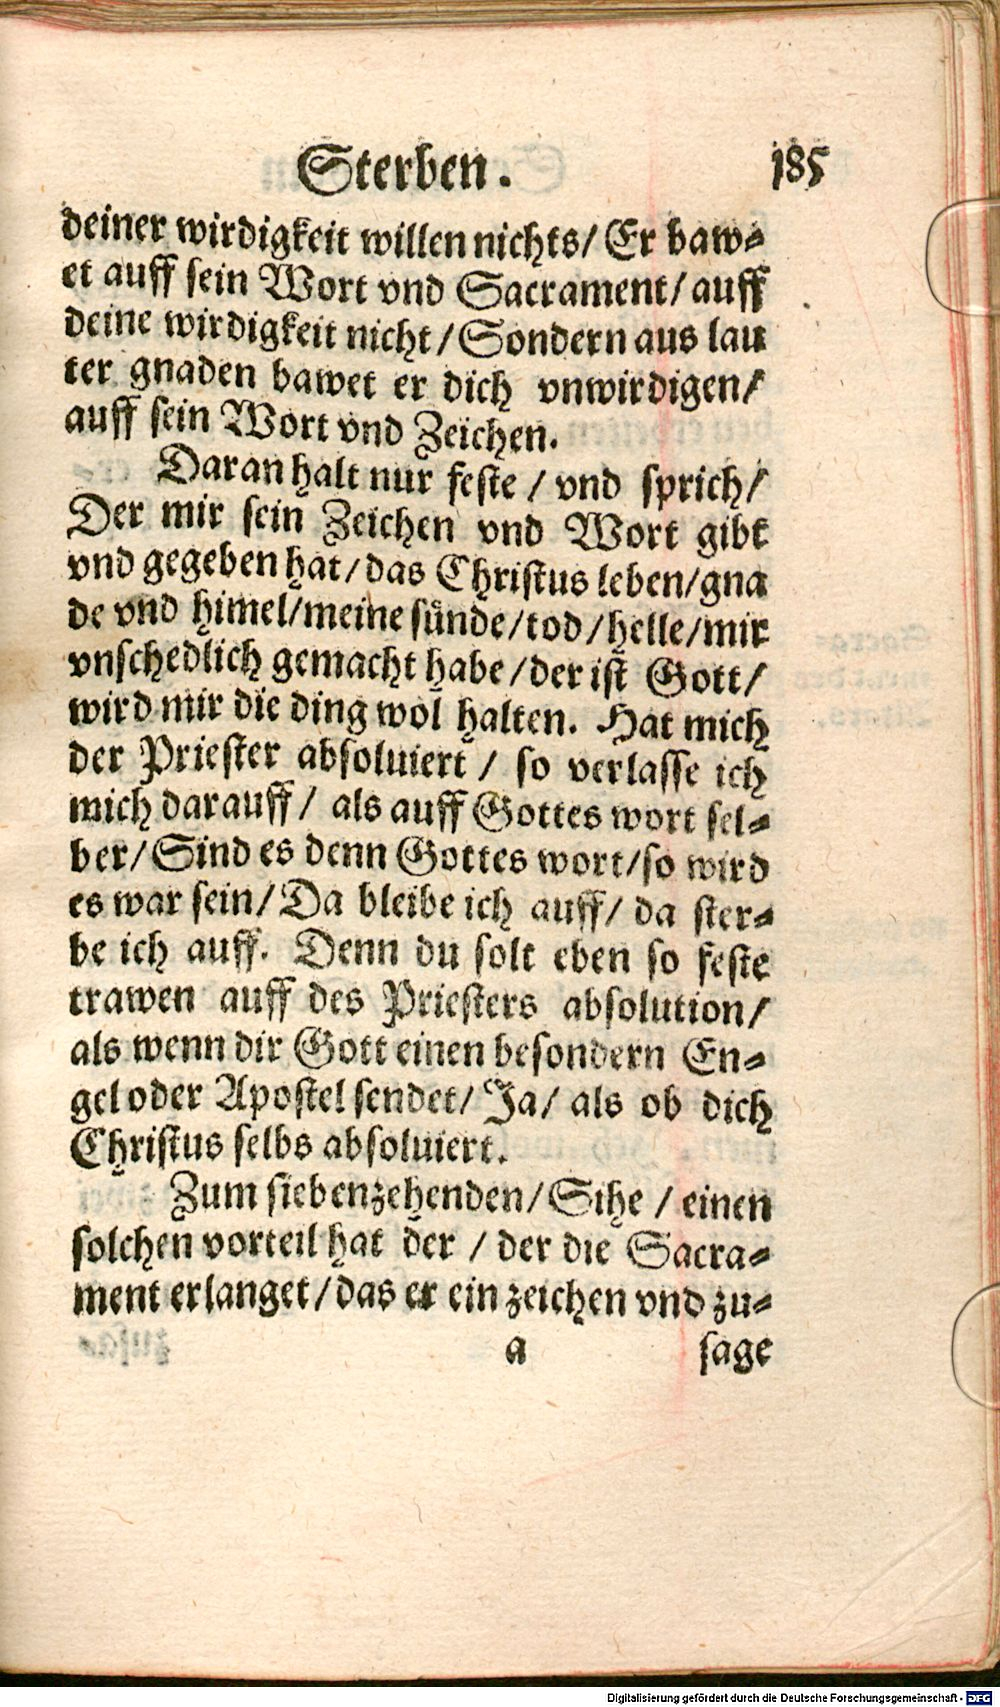 Sterben. 185
deiner wirdigkeit willen nichts/ Er baw⸗
et auff sein Wort vnd Sacrament/ auff
deine wirdigkeit nicht/ Sondern aus lau
ter gnaden bawet er dich vnwirdigen/
auff sein Wort vnd Zeichen.
Daran halt nur feste / vnd sprich/
Der mir sein Zeichen vnd Wort gibt
vnd gegeben hat/ das Christus leben/ gna
de vnd himel/ meine sünde/ tod/ helle/ mir
vnschedlich gemacht habe/ der ist Gott/
wird mir die ding wol halten. Hat mich
der Priester absoluiert / so verlasse ich
mich darauff/ als auff Gottes wort sel⸗
ber/ Sind es denn Gottes wort/ so wird
es war sein/ Da bleibe ich auff/ da ster⸗
be ich auff. Denn du solt eben so feste
trawen auff des Priesters absolution/
als wenn dir Gott einen besondern En⸗
gel oder Apostel sendet/ Ja/ als ob dich
Christus selbs absoluiert.
Zum siebenzehenden/ Sihe / einen
solchen vorteil hat der / der die Sacra⸗
ment erlanget/ das er ein zeichen vnd zu⸗
a sage
Digitalisierung gefördert durch die Deutsche Forschungsgemeinschaft - DFG